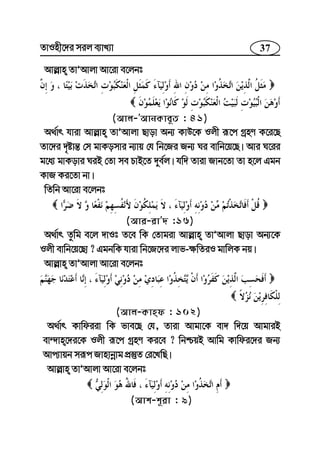 তাওহীদের সরল ব্যাখ্যা 37
আল্লাহ্ তা'আলা আরো বলেনঃ
﴿ مَثَلُ الَّذِيْنَ اتَّخَذُوْا مِنْ دُوْنِ اللهِ أَوْلِيَآءَ كَمَثَلِ الْعَنْكَبُوْتِ اتَّخَذَتْ بَيْتًا ، وَ إِنَّ
أَوْهَنَ الْبُيُوْتِ لَبَيْتُ الْعَنْكَبُوْتِ لَوْ كَانُوْا يَعْلَمُوْنَ ﴾
(আল-'আনকাবূত : ৪১)
অর্থাৎ যারা আল্লাহ্ তা'আলা ছাড়া অন্য কাউকে ওলী রূপে গ্রহণ করেছে
তাদের দৃষ্টান্ত সে মাকড়সার ন্যায় যে নিজের জন্য ঘর বানিয়েছে। আর ঘরের
মধ্যে মাকড়ার ঘরই তো সব চাইতে দূর্বল। যদি তারা জানতো তা হলে এমন
কাজ করতো না।
তিনি আরো বলেনঃ
﴿ قُلْ أَفَاتَّخَذْتُمْ مِّنْ دُوْنِهِ أَوْلِيَآءَ ، لَا يَمْلِكُوْنَ لِأَنْفُسِهِمْ نَفْعًا وَّ لَا ضَرًّا ﴾
(আর-রা'দ :১৬)
অর্থাৎ তুমি বলে দাওঃ তবে কি তোমরা আল্লাহ্ তা'আলা ছাড়া অন্যকে
ওলী বানিয়েছো ? এমনকি যারা নিজেদের লাভ-ক্ষতিরও মালিক নয়।
আল্লাহ্ তা'আলা আরো বলেনঃ
﴿ أَفَحَسِبَ الَّذِيْنَ كَفَرُوْا أَنْ يَّتَّخِذُوْا عِبَادِيْ مِنْ دُوْنِيْ أَوْلِيَآءَ ، إِنَّا أَعْتَدْنَا جَهَنَّمَ
لِلْكَافِرِيْنَ نُزُلًا ﴾
(আল-কাহ্ফ : ১০২)
অর্থাৎ কাফিররা কি ভাবছে যে, তারা আমাকে বাদ দিয়ে আমারই
বান্দাহ্‌দেরকে ওলী রূপে গ্রহণ করবে ? নিশ্চয়ই আমি কাফিরদের জন্য
আপ্যায়ন সরূপ জাহান্নাম প্রস্তুত রেখেছি।
আল্লাহ্ তা'আলা আরো বলেনঃ
﴿ أَمِ اتَّخَذُوْا مِنْ دُوْنِهِ أَوْلِيَآءَ ، فَاللهُ هُوَ الْوَلِيُّ ﴾
(আশ-শূরা : ৯)